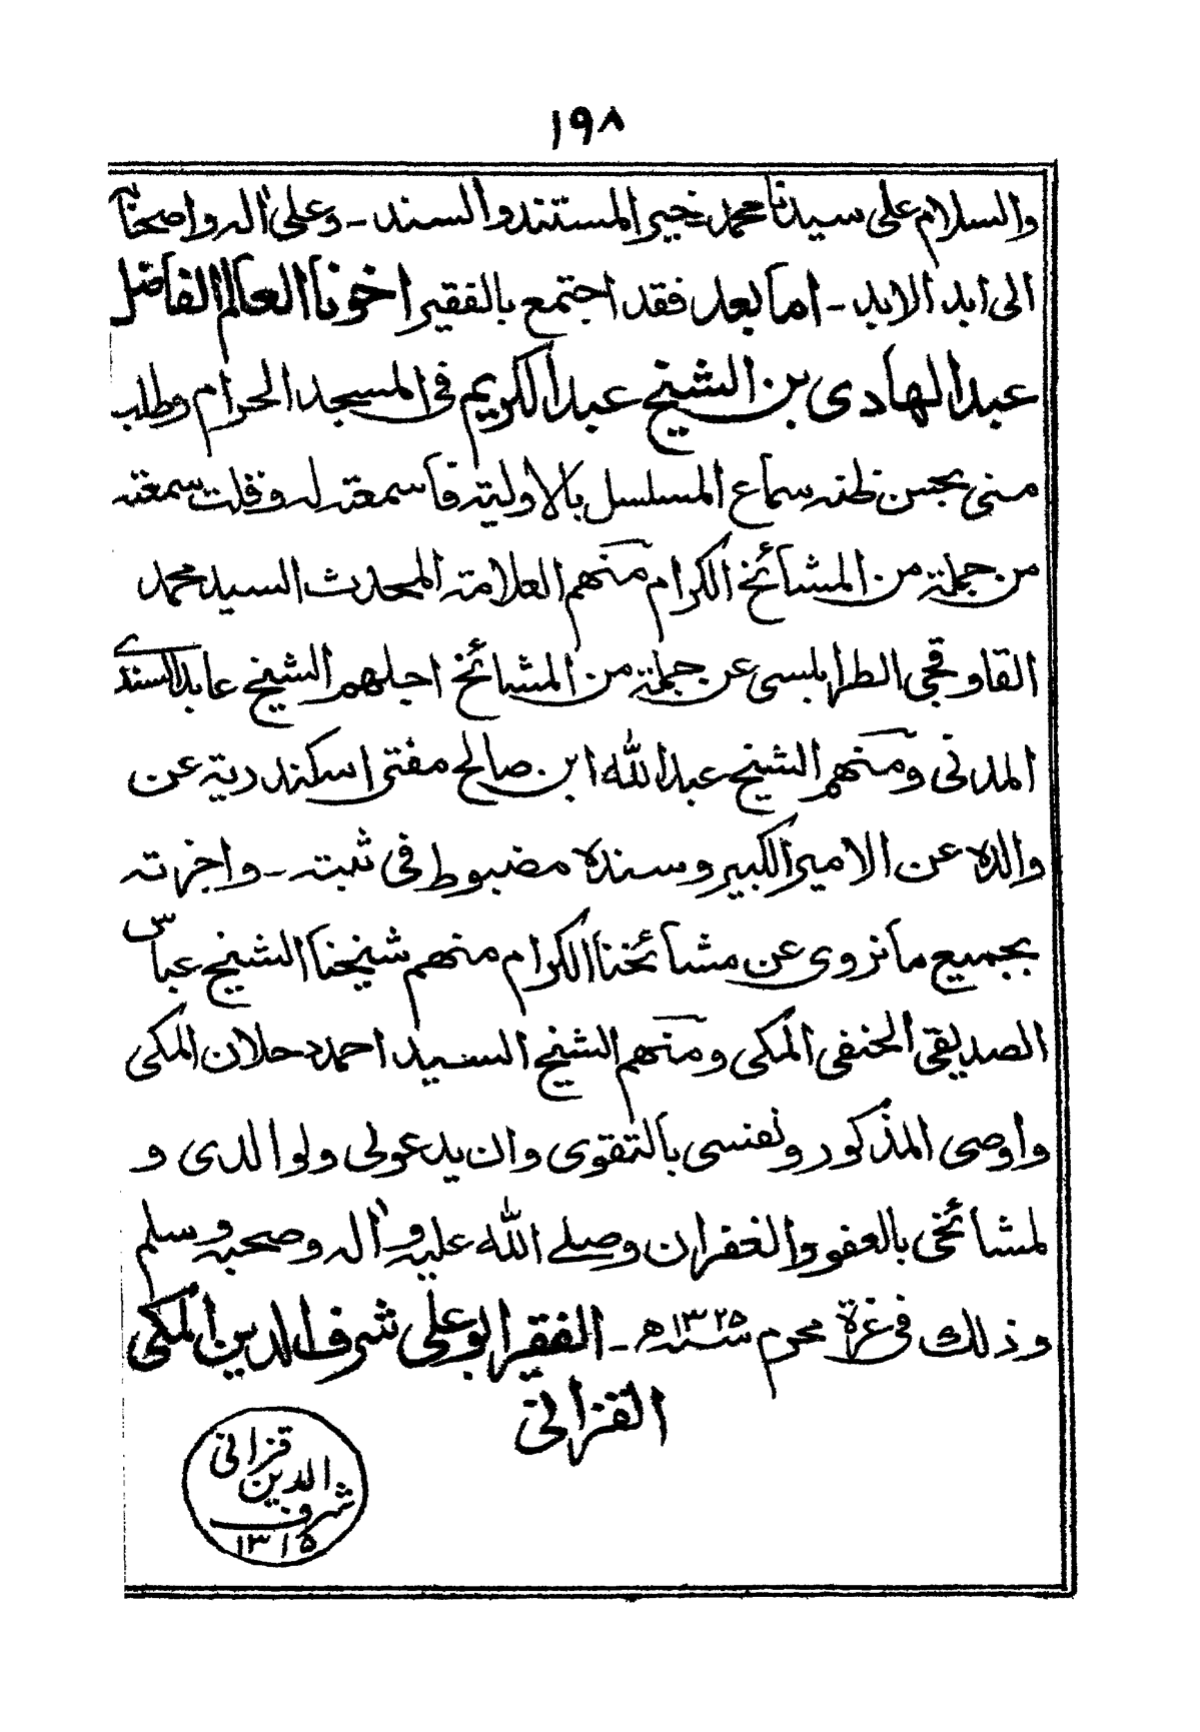 ١٩٨
والسلام على سيدنا محمد خير المستند والسند - وعلى اله واصحابه
الى ابد الابد - اما بعد فقد اجتمع بالفقير اخونا العالم الفاضل
عبد الهادى بن الشيخ عبد الكريم فى المسجد الحرام وطلب
منى بحسن ظنه سماع المسلسل بالاولية فاسمعته له وقلت سمعته
من جملة من المشائخ الكرام منهم العلامة المحدث السيد محمد
القاوقجى الطرابلسى عن جملة من المشائخ اجلهم الشيخ عابد السندى
المدنى ومنهم الشيخ عبد الله ابن صالح مفتى اسكندرية عن
والده عن الامير الكبير وسنده مضبوط فى ثبته - واجزته
بجميع ما نروى عن مشائخنا الكرام منهم شيخنا الشيخ عباس
الصديقى الحنفى المكى ومنهم الشيخ السيد احمد دحلان المكى
واوصى المذكور ونفسى بالتقوى وان يدعولى ولوالدى و
لمشائخى بالعفو والغفران وصلے الله عليه واله وصحبه وسلم
وذلك فى غرة محرم سنه ١٣٢٥ھ - الفقير ابو على شرف الدين المكى
القزانى
قزانى
الدين
شرف
١٣١٥